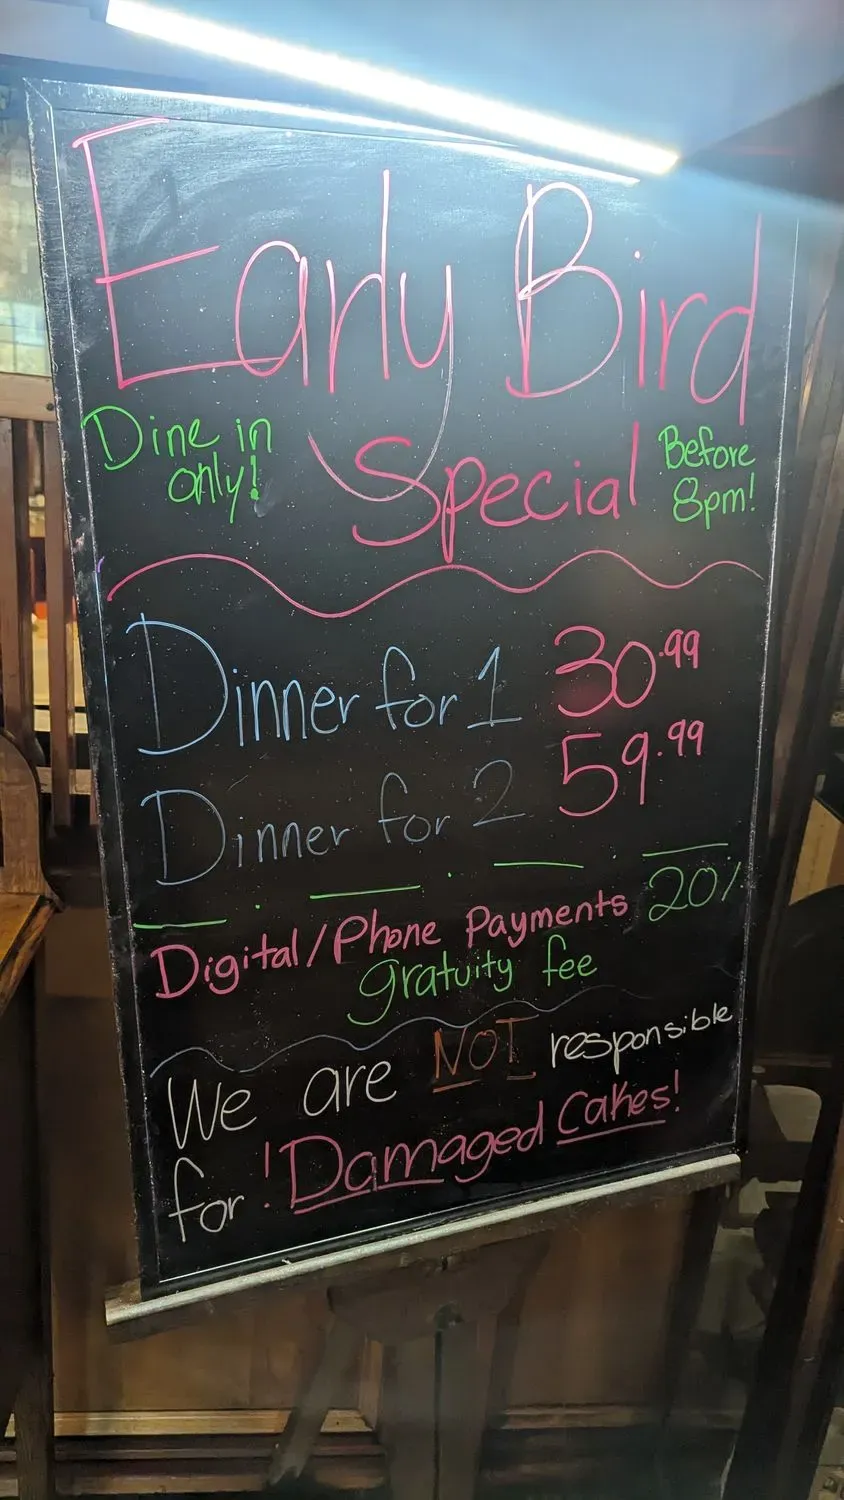 Early Bird
Dine in
only!
Special
Before
8pm!
Dinner for 1 30.99
Dinner for 2 59.99
Digital/Phone Payments 20%
gratuity fee
We are NOT responsible
for !Damaged Cakes!